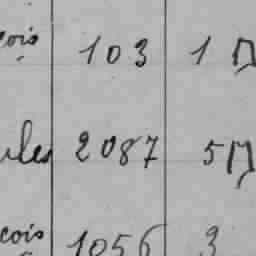 cois 103 1
ules 2087 5
cois 1056 3